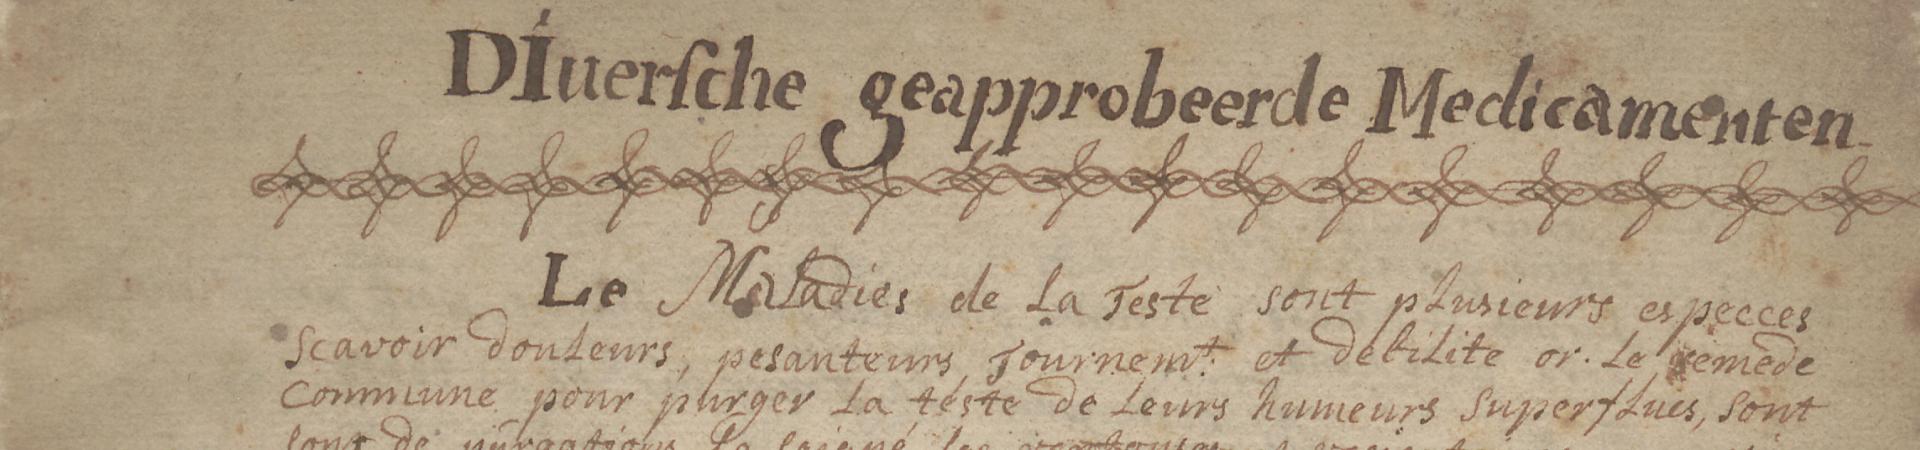 DIuersche geapprobeerde Medicamenten
Le Maladies de la Teste sont plusieurs especces
Scavoir douleurs, pesanteurs, Tournemt. et debilite or. le remede
Commune pour purger la téste de leurs humeurs superflues, sont
sont de purgations la